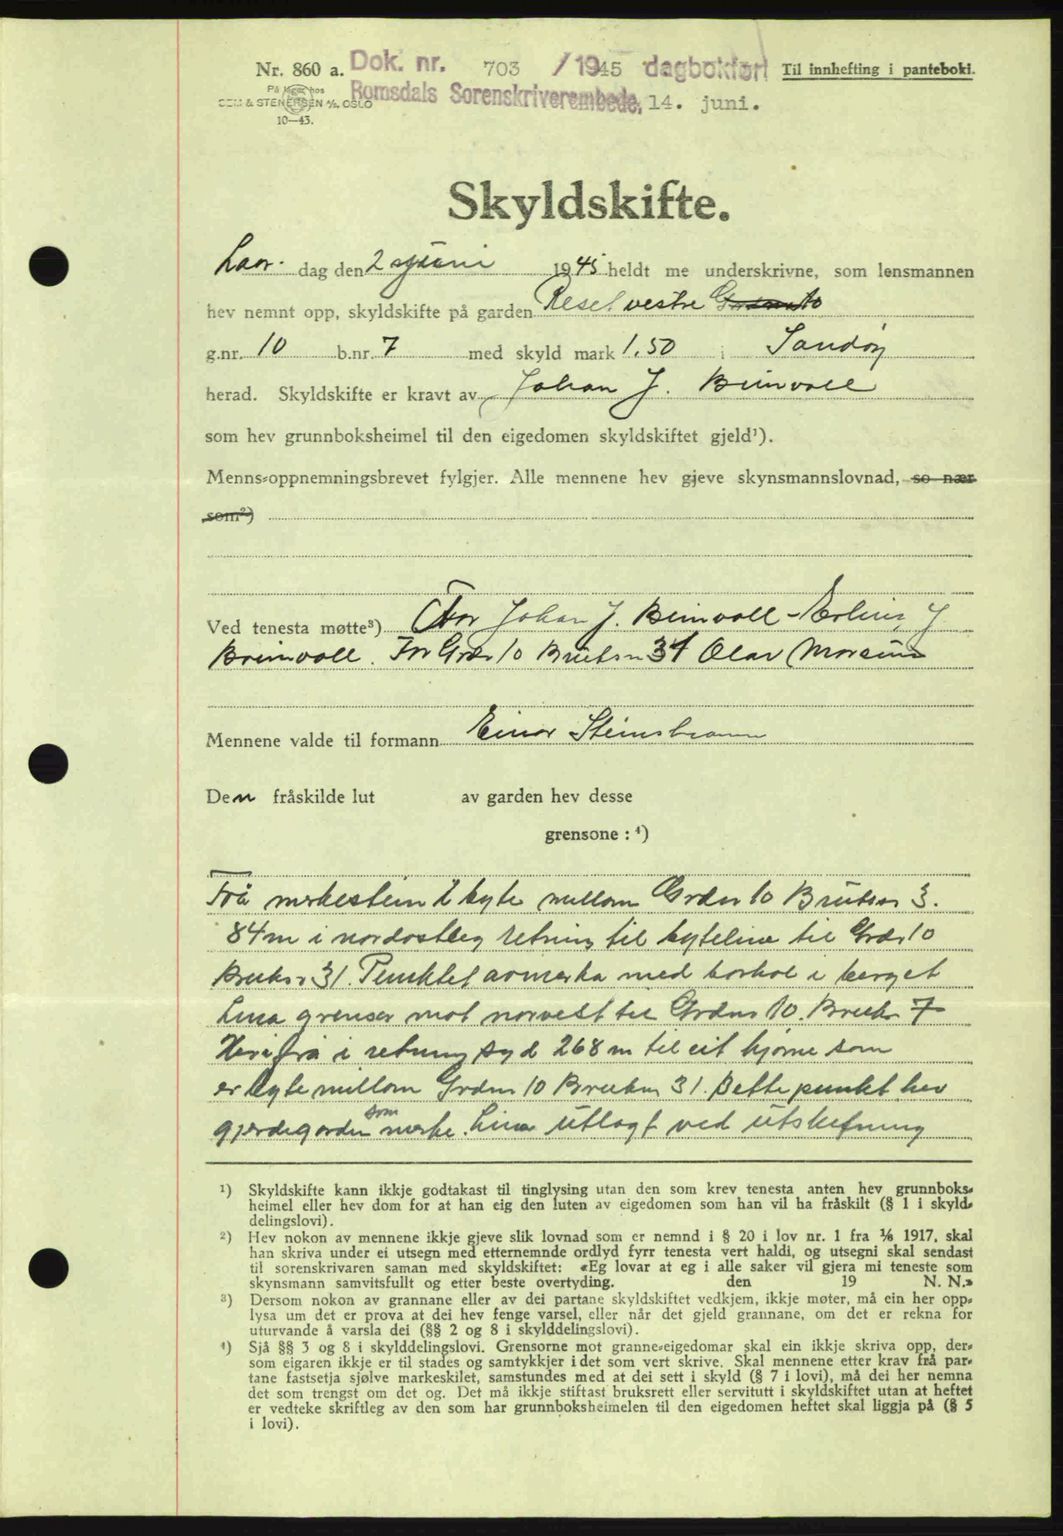 Nr. 860 a. Dok. nr. 703 /1945 dagbokført Til innhefting i pantebok.
På lager hos
SEM & STENERSEN A/S, OSLO Romsdals Sorenskriverembede, 14. juni.
10—43.
Skyldskifte.
Laur. dag den 2 juni 1945 heldt me underskrivne, som lensmannen
hev nemnt opp, skyldskifte på garden Resel vestre
g.nr. 10 b.nr. 7 med skyld mark 1.50 i Sandøy
herad. Skyldskifte er kravt av Johan J. Breivoll
som hev grunnboksheimel til den eigedomen skyldskiftet gjeld¹).
Menns-oppnemningsbrevet fylgjer. Alle mennene hev gjeve skynsmannslovnad, so nær
som²)
Ved tenesta møtte³) For Johan J. Breivoll - Erlins J
Breivoll. For Grdn 10 Bruksn 31 Olav Morsund
Mennene valde til formann Einar
Den fråskilde lut av garden hev desse
grensone : ⁴)
Frå merkestein i byte millom Grdnr 10 Bruksnr 3.
84 m i nordostleg retning til byteline til Grdnr 10
Bruksnr 31. Punktet avmerka med borhol i berget
Lina grenser mot norvest til Grdnr 10. Bruksnr 7
Herifrå i retning syd 268 m til eit hjørne som
er byte millom Grdnr 10 Bruksnr 31. Dette punkt hev
gjerdegarden som merke. Lina utlagt ved utskifning
¹) Skyldskifte kann ikkje godtakast til tinglysing utan den som krev tenesta anten hev grunnboks-
heimel eller hev dom for at han eig den luten av eigedomen som han vil ha fråskilt (§ 1 i skyld-
delingslovi).
²) Hev nokon av mennene ikkje gjeve slik lovnad som er nemnd i § 20 i lov nr. 1 fra ⅙ 1917, skal
han skriva under ei utsegn med etternemnde ordlyd fyrr tenesta vert haldi, og utsegni skal sendast
til sorenskrivaren saman med skyldskiftet: «Eg lovar at eg i alle saker vil gjera mi teneste som
skynsmann samvitsfullt og etter beste overtyding. den 19 N. N.»
³) Dersom nokon av grannane eller av dei partane skyldskiftet vedkjem, ikkje møter, må ein her opp-
lysa um det er prova at dei hev fenge varsel, eller når det gjeld grannane, om det er rekna for
uturvande å varsla dei (§§ 2 og 8 i skylddelingslovi).
⁴) Sjå §§ 3 og 8 i skylddelingslovi. Grensorne mot granne-eigedomar skal ein ikkje skriva opp, der-
som eigaren ikkje er til stades og samtykkjer i det som vert skrive. Skal mennene etter krav frå par-
tane fastsetja sjølve markeskilet, samstundes med at dei sett i skyld (§ 7 i lovi), må dei her nemna
det som trengst om det og. Det må ikkje stiftast bruksrett eller servitutt i skyldskiftet utan at heftet
er vedteke skriftleg av den som har grunnboksheimelen til den eigedomen heftet skal liggja på (§ 5
i lovi).